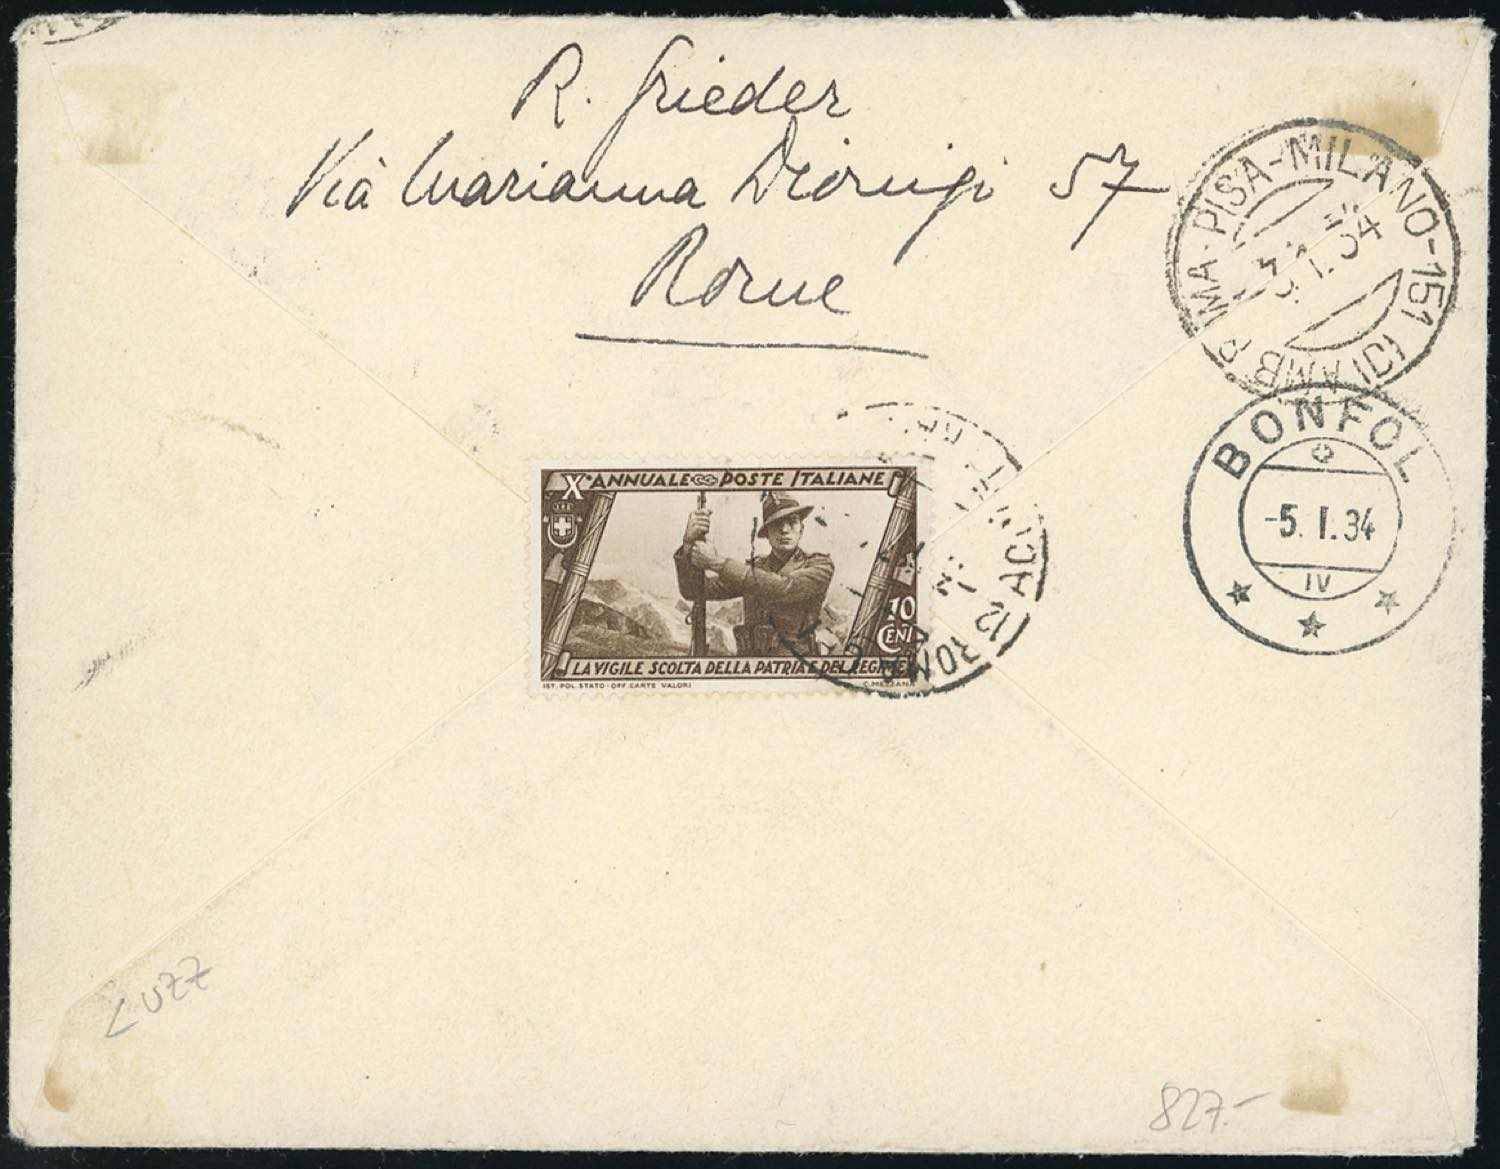 R. Grieder
Via Marianna Dionigi 57
Rome
ROMA-PISA-MILANO-151 (D) AMB.
3.1.34
BONFOL
-5.I.34
IV
X° ANNUALE POSTE ITALIANE
10
CENT
LA VIGILE SCOLTA DELLA PATRIA E DEL REGIME
IST. POL. STATO-OFF. CARTE VALORI
C. MEZZANA
12 ROMA
827.-